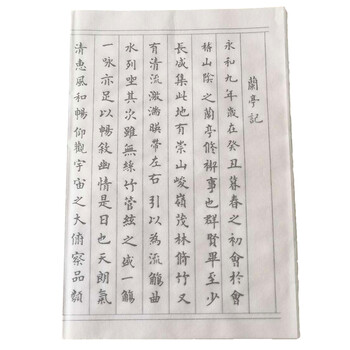 蘭亭記
永和九年歲在癸丑暮春之初會於會
稽山陰之蘭亭修禊事也群賢畢至少
長咸集此地有崇山峻嶺茂林脩竹又
有清流激湍暎帶左右引以為流觴曲
水列坐其次雖無絲竹管絃之盛一觴
一咏亦足以暢敘幽情是日也天朗氣
清惠風和暢仰觀宇宙之大俯察品類